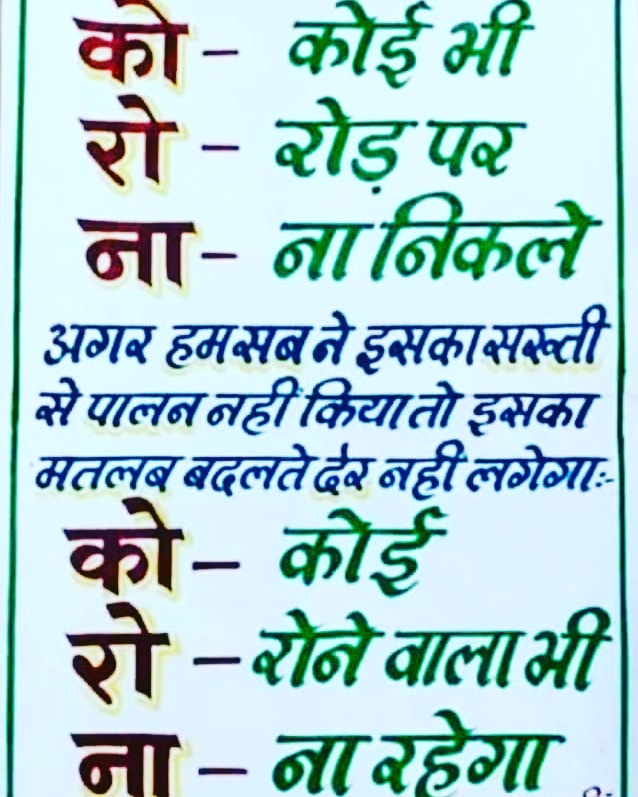 को – कोई भी
रो – रोड़ पर
ना – ना निकले
अगर हम सब ने इसका सख्ती
से पालन नहीं किया तो इसका
मतलब बदलते देर नहीं लगेगाः-
को – कोई
रो – रोने वाला भी
ना – ना रहेगा